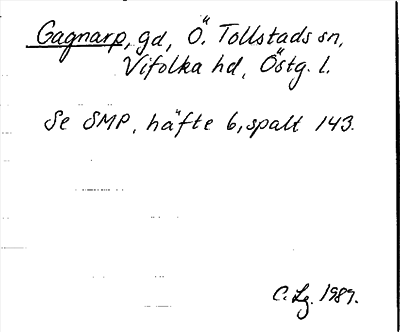 Gagnarp, gd, Ö. Tollstads sn,
Vifolka hd, Östg. l.
Se SMP, häfte 6, spalt 143.
C. Lg. 1989.